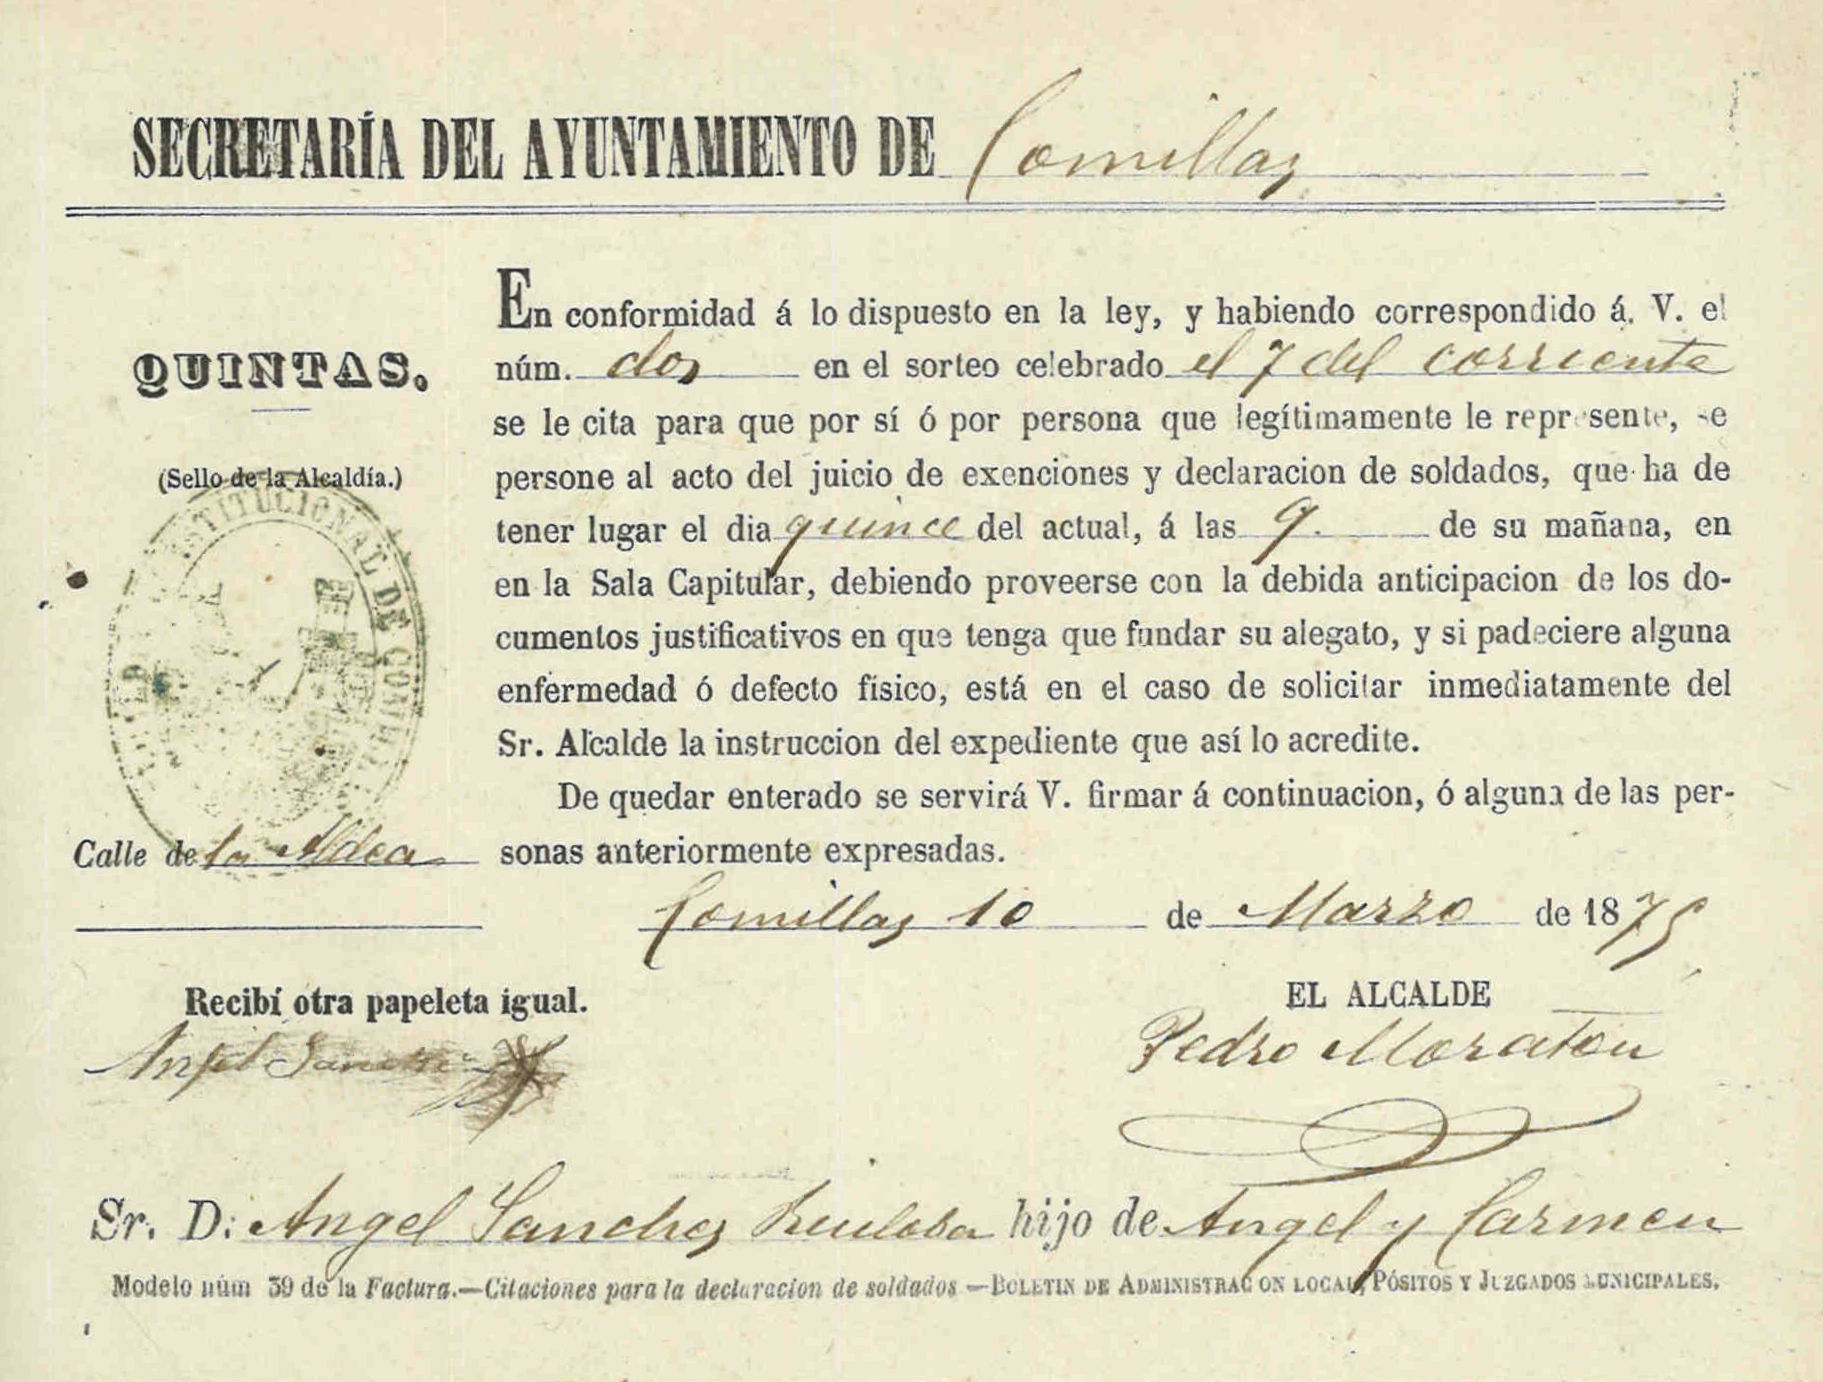 SECRETARÍA DEL AYUNTAMIENTO DE Comillas
QUINTAS.
(Sello de la Alcaldía.)
STITUCIONAL DE COMILL
Calle de la Aldea
En conformidad á lo dispuesto en la ley, y habiendo correspondido á. V. el
núm. dos en el sorteo celebrado el 7 del corriente
se le cita para que por sí ó por persona que legítimamente le represente, se
persone al acto del juicio de exenciones y declaracion de soldados, que ha de
tener lugar el dia quince del actual, á las 9. de su mañana, en
en la Sala Capitular, debiendo proveerse con la debida anticipacion de los do-
cumentos justificativos en que tenga que fundar su alegato, y si padeciere alguna
enfermedad ó defecto físico, está en el caso de solicitar inmediatamente del
Sr. Alcalde la instruccion del expediente que así lo acredite.
De quedar enterado se servirá V. firmar á continuacion, ó alguna de las per-
sonas anteriormente expresadas.
Comillas 10 de Marzo de 1875
Recibí otra papeleta igual.
Angel Sanchez
EL ALCALDE
Pedro Moraton
Sr. D: Angel Sanchez Ruiloba hijo de Angel y Carmen
Modelo núm 39 de la Factura.—Citaciones para la declaracion de soldados —BOLETIN DE ADMINISTRACION LOCAL, PÓSITOS Y JUZGADOS MUNICIPALES.